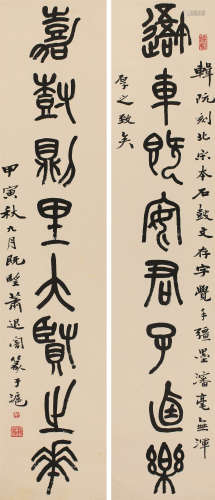 車既安君子逌樂
輯阮刻北宋本石鼓文存字覺手彊墨瀋毫無渾
厚之致矣
嘉樹則里大賢之華
甲寅秋九月既望蕭退闇篆于滬